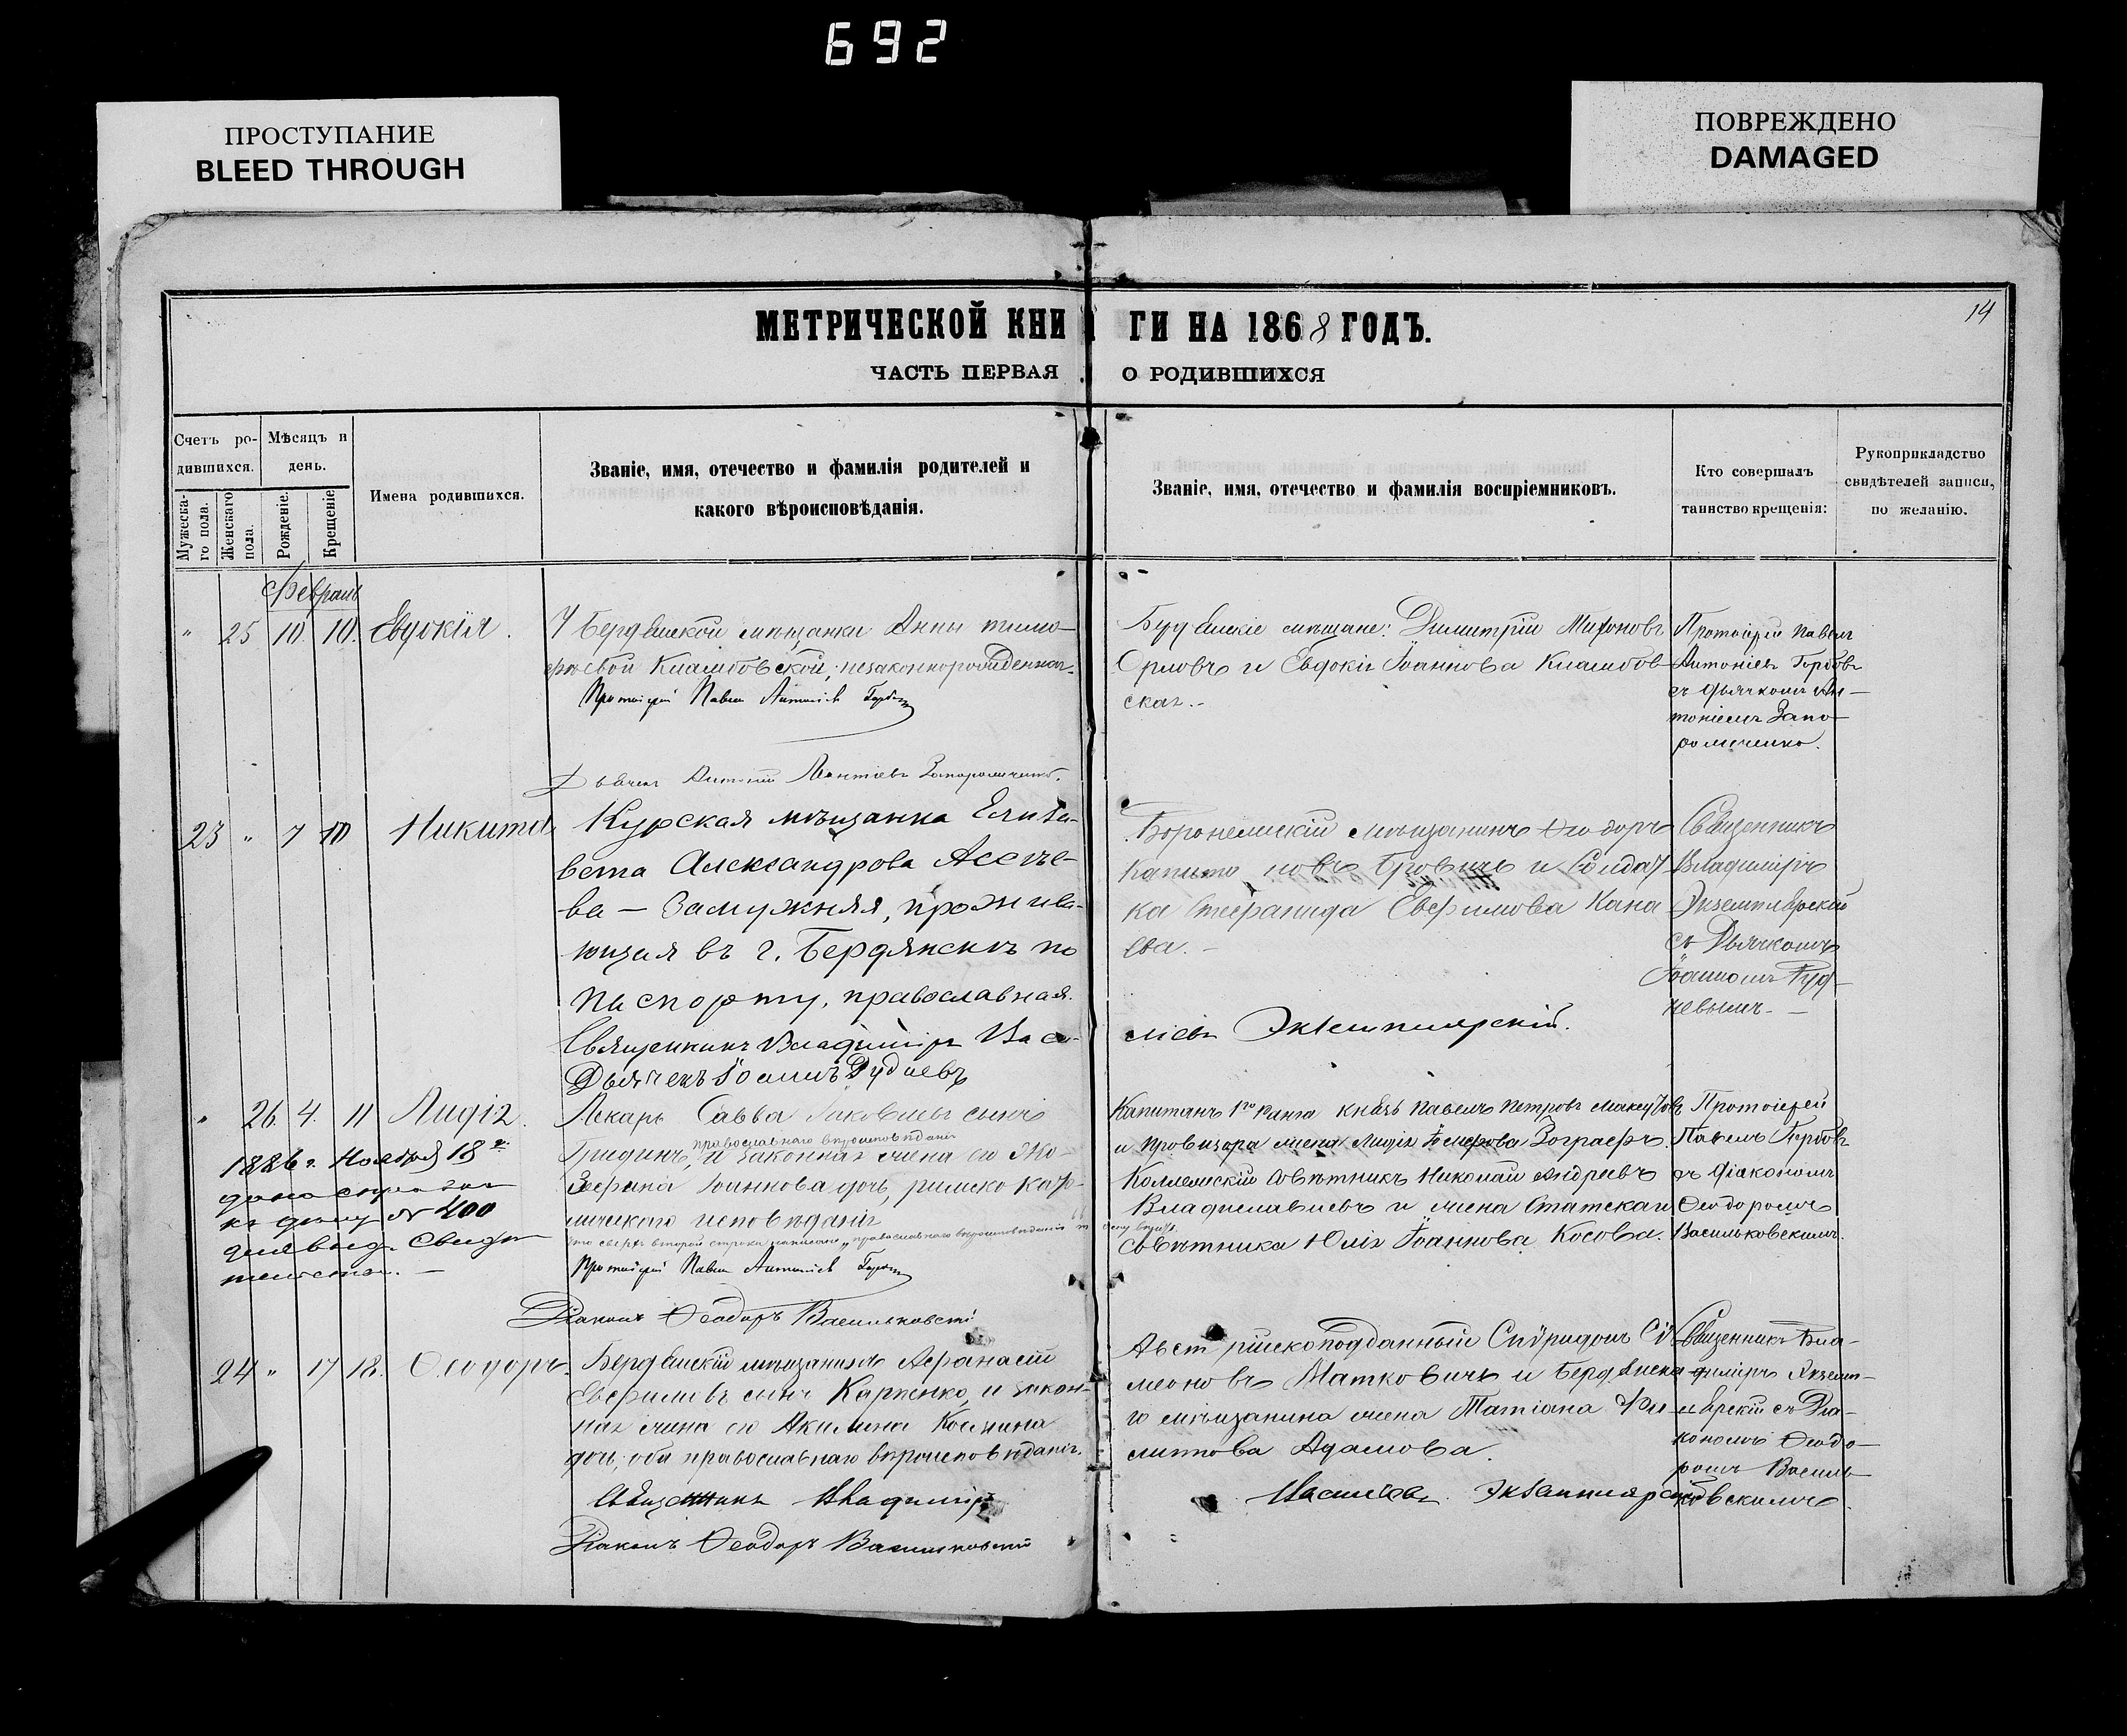 692
ПРОСТУПАНИЕ
BLEED THROUGH
ПОВРЕЖДЕНО
DAMAGED
14
МЕТРИЧЕСКОЙ КНИГИ НА 1868 ГОДЪ.
ЧАСТЬ ПЕРВАЯ О РОДИВШИХСЯ
Счетъ ро-
дившихся.
Мужеска-
го пола.
Женскаго
пола.
Мѣсяцъ и
день.
Рожденіе.
Крещеніе
Имена родившихся.
Званіе, имя, отечество и фамилія родителей и
какого вѣроисповѣданія.
Званіе, имя, отечество и фамилія воспріемниковъ.
Кто совершалъ
таинство крещенія:
Рукоприкладство
свидѣтелей записи,
по желанію.
Февраль
" 25 10. 10. Евдокія.
У Бердянской мѣщанки Анны Тимо-
феевой незаконнорожденная.
Протоіерей Павелъ Антоніевъ
Дьячекъ Антоній Леонтіевъ
мѣщане: Димитрій
Орловъ и Евдокія Іоаннова
ская.-
Протоіерей Павелъ
Антоніевъ
съ дьячкомъ Ан-
тоніемъ Запо-
23 " 7 10 Никита
Курская мѣщанка Елиса-
вета Александрова Асѣе-
ва - Замужняя, прожива-
ющая въ г. Бердянскѣ по
паспорту, православная.
Священникъ Владиміръ Васи-
ліевъ Экземплярскій.
Дьячекъ Іоаннъ Рудневъ
Воронежскій мѣщанинъ Ѳеодоръ
Капитоновъ и Солдат
ка Стефанида Евфимова Кана
ева.-
Священникъ
Владиміръ
Экземплярскій
съ Дьячкомъ
Іоанномъ Руд-
невымъ.-
" 26. 4. 11 Лидія.
1886 г. Ноября 18 д.
дана справка
къ дѣлу № 400
для выд. Свидѣ
тельства.-
Лекарь Савва Іаковлевъ сынъ
православнаго вѣроисповѣданія
Гридинъ, и законная жена его Жо-
зефина Іоаннова дочь, римско като-
лического исповѣданія
что сверхъ второй строки написано „православнаго вѣроисповѣданія"
Протоіерей Павелъ Антоніевъ
Діаконъ Ѳеодоръ Васильковскій
Капитанъ 1го ранга князь Павелъ Петровъ Максутовъ
и Провизора жена Лидія Зографъ.
Коллежскій Совѣтникъ Николай Андреевъ
Владиславлевъ и жена Статскаго
Совѣтника Юлія Іоаннова Косова.
Протоіерей
Павелъ
съ Діакономъ
Ѳеодоромъ
Васильковскимъ.
24 " 17 18. Ѳеодоръ.
Бердянскій мѣщанинъ Аѳанасій
Евфиміевъ сынъ Карпенко, и закон-
ная жена его Акилина Космина
дочь; оба православнаго вѣроисповѣданія.
Священникъ Владиміръ
Васильевъ Экземплярскій
Діаконъ Ѳеодоръ Васильковскій
Австрійскоподданный Спиридонъ Си
меоновъ Матковичъ и Бердянска
го мѣщанина жена Татіана Фи-
липпова Адамова.
Священникъ Вла-
диміръ Экземп-
лярскій съ Діа-
кономъ Ѳеодо-
ромъ Василь-
ковскимъ.